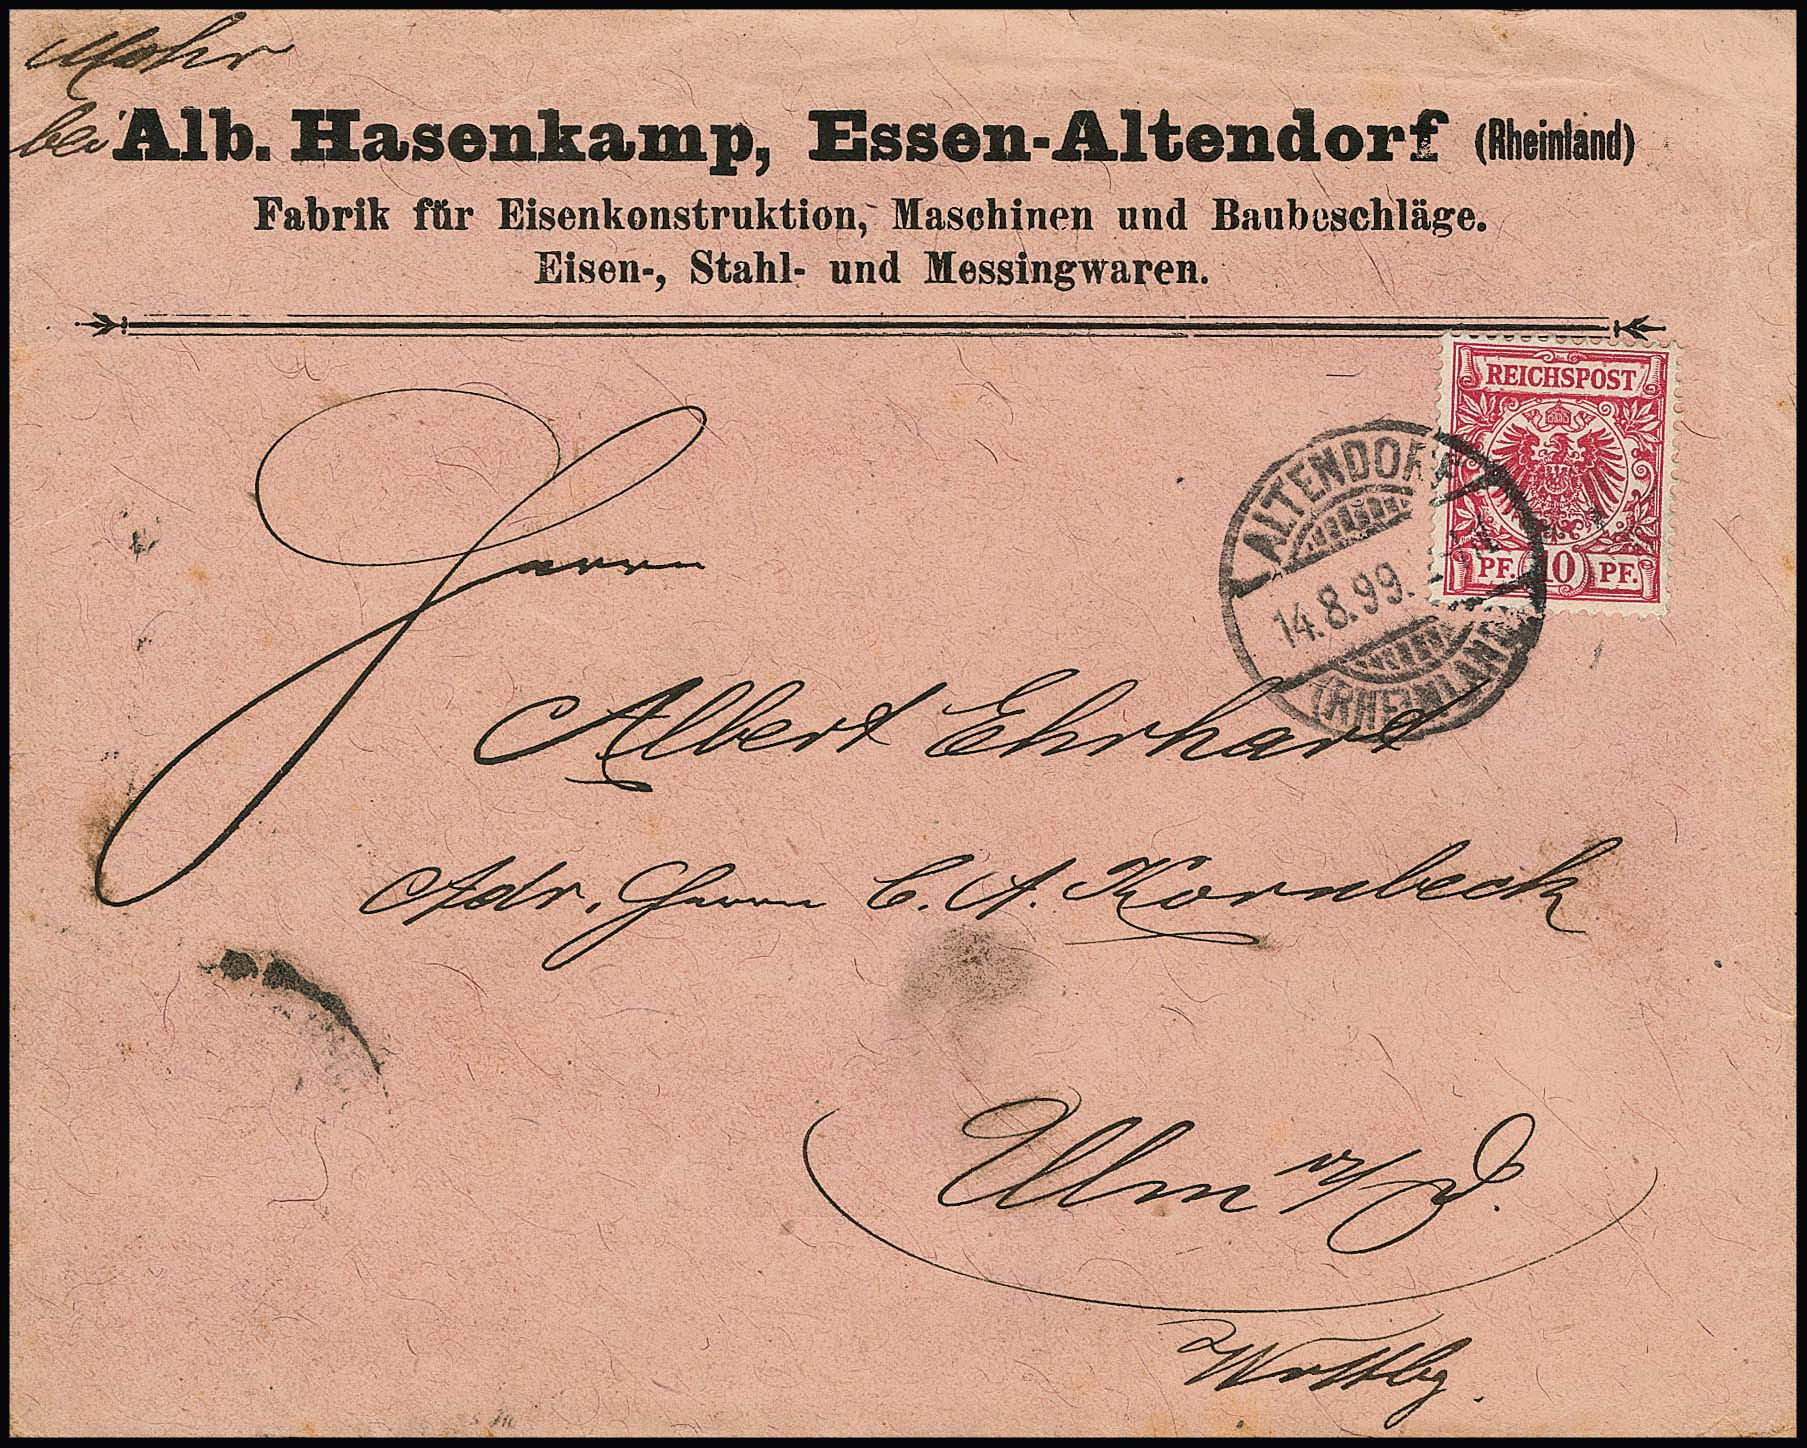 Mohr
bei Alb. Hasenkamp, Essen-Altendorf (Rheinland)
Fabrik für Eisenkonstruktion, Maschinen und Baubeschläge.
Eisen-, Stahl- und Messingwaren.
REICHSPOST
PF. 10 PF.
ALTENDORF
14.8.99.
(RHEINLAND)
Herrn
Albert Ehrhart
Adr. Herrn C. A. Kornbeck
Ulm a/D.
Wrttbg.